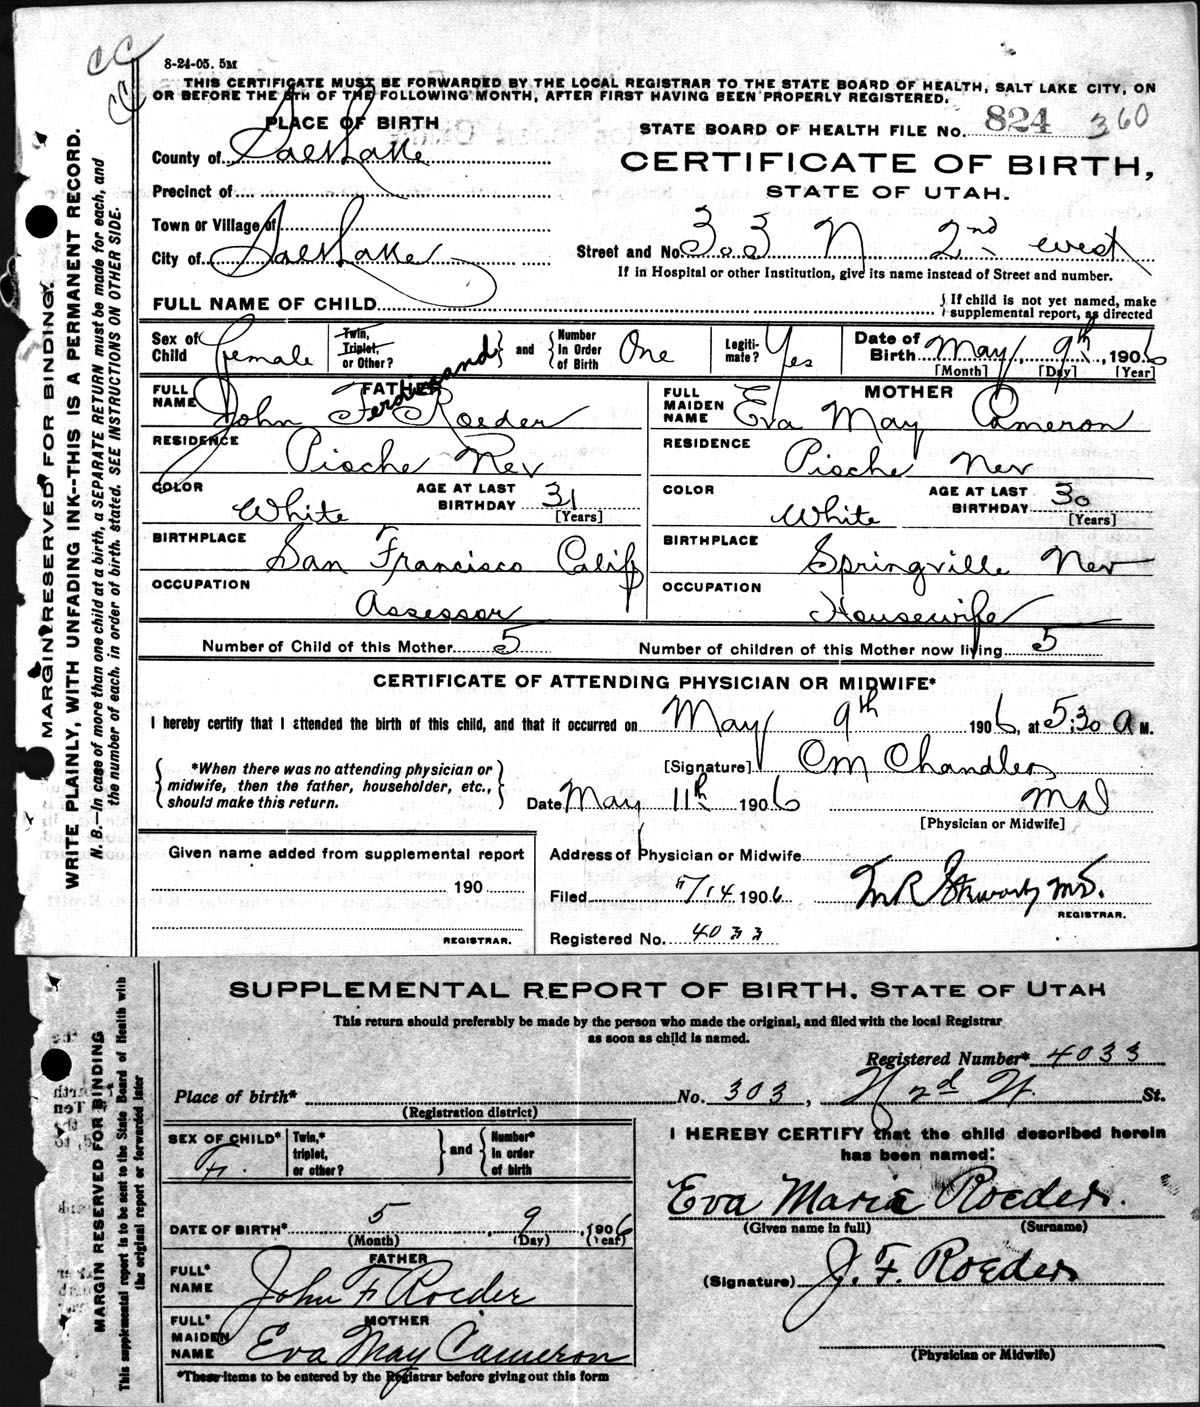 CC
CC
8-24-05. 5M
THIS CERTIFICATE MUST BE FORWARDED BY THE LOCAL REGISTRAR TO THE STATE BOARD OF HEALTH, SALT LAKE CITY, ON
OR BEFORE THE 5TH OF THE FOLLOWING MONTH, AFTER FIRST HAVING BEEN PROPERLY REGISTERED.
PLACE OF BIRTH
STATE BOARD OF HEALTH FILE No. 824 360
County of Salt Lake
CERTIFICATE OF BIRTH,
STATE OF UTAH.
Precinct of
Town or Village of
City of Salt Lake
Street and No. 303 N 2nd west
If in Hospital or other Institution, give its name instead of Street and number.
FULL NAME OF CHILD
{ If child is not yet named, make
supplemental report, as directed
Sex of Child female
Twin, Triplet, or Other?
and
Number In Order of Birth One
Legiti-mate? Yes
Date of Birth May 9th, 1906
[Month] [Day] [Year]
FATHER
FULL NAME John Ferdinand Roeder
MOTHER
FULL MAIDEN NAME Eva May Cameron
RESIDENCE Pioche Nev
RESIDENCE Pioche Nev
COLOR White
AGE AT LAST BIRTHDAY 31 [Years]
COLOR White
AGE AT LAST BIRTHDAY 30 [Years]
BIRTHPLACE San Francisco Calif
BIRTHPLACE Springville Nev
OCCUPATION Assessor
OCCUPATION Housewife
Number of Child of this Mother 5
Number of children of this Mother now living 5
CERTIFICATE OF ATTENDING PHYSICIAN OR MIDWIFE*
I hereby certify that I attended the birth of this child, and that it occurred on May 9th 1906, at 5:30 a M.
{ *When there was no attending physician or
midwife, then the father, householder, etc.,
should make this return. }
[Signature] CM Chandler
Date May 11th 1906 MD
[Physician or Midwife]
Given name added from supplemental report
190
REGISTRAR.
Address of Physician or Midwife
Filed 5/14 1906
M.D.
REGISTRAR.
Registered No. 4033
MARGIN RESERVED FOR BINDING.
WRITE PLAINLY, WITH UNFADING INK--THIS IS A PERMANENT RECORD.
N. B.--In case of more than one child at a birth, a SEPARATE RETURN must be made for each, and
the number of each, in order of birth, stated. SEE INSTRUCTIONS ON OTHER SIDE.
SUPPLEMENTAL REPORT OF BIRTH, STATE OF UTAH
This return should preferably be made by the person who made the original, and filed with the local Registrar
as soon as child is named.
Registered Number* 4033
Place of birth* No. 303, N 2nd W. St.
(Registration district)
SEX OF CHILD* F.
Twin,* triplet, or other?
and
Number* in order of birth
I HEREBY CERTIFY that the child described herein
has been named:
Eva Marie Roeder.
(Given name in full) (Surname)
DATE OF BIRTH* 5 9, 1906
(Month) (Day) (Year)
FATHER
FULL* NAME John F Roeder
(Signature) J. F. Roeder
MOTHER
FULL* MAIDEN NAME Eva May Cameron
(Physician or Midwife)
*These items to be entered by the Registrar before giving out this form
MARGIN RESERVED FOR BINDING
This supplemental report is to be sent to the State Board of Health with
the original report or forwarded later